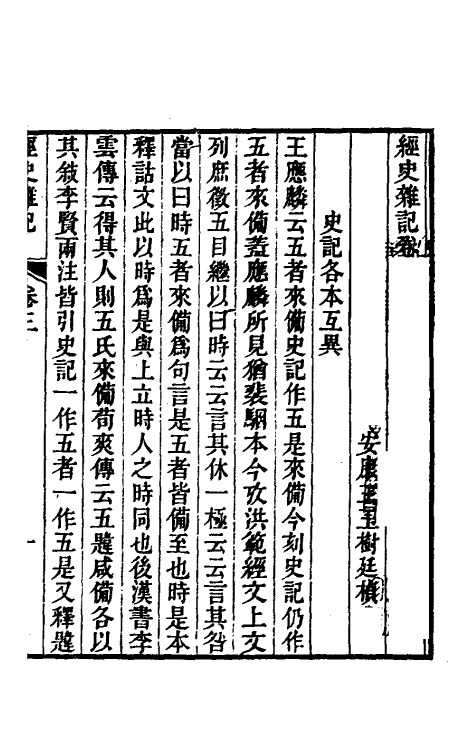 經史雜記卷三
安康王玉樹廷楨
史記各本互異
王應麟云五者來備史記作五是來備今刻史記仍作
五者來備葢應麟所見猶裴駰本今攷洪範經文上文
列庶徵五目繼以曰時云云言其休一極云云言其咎
當以曰時五者來備爲句言是五者皆備至也時是本
釋詁文此以時爲是與上立時人之時同也後漢書李
雲傳云得其人則五氏來備荀爽傳云五韙咸備各以
其敍李賢兩注皆引史記一作五者一作五是又釋韙
經史雜記
卷三
一